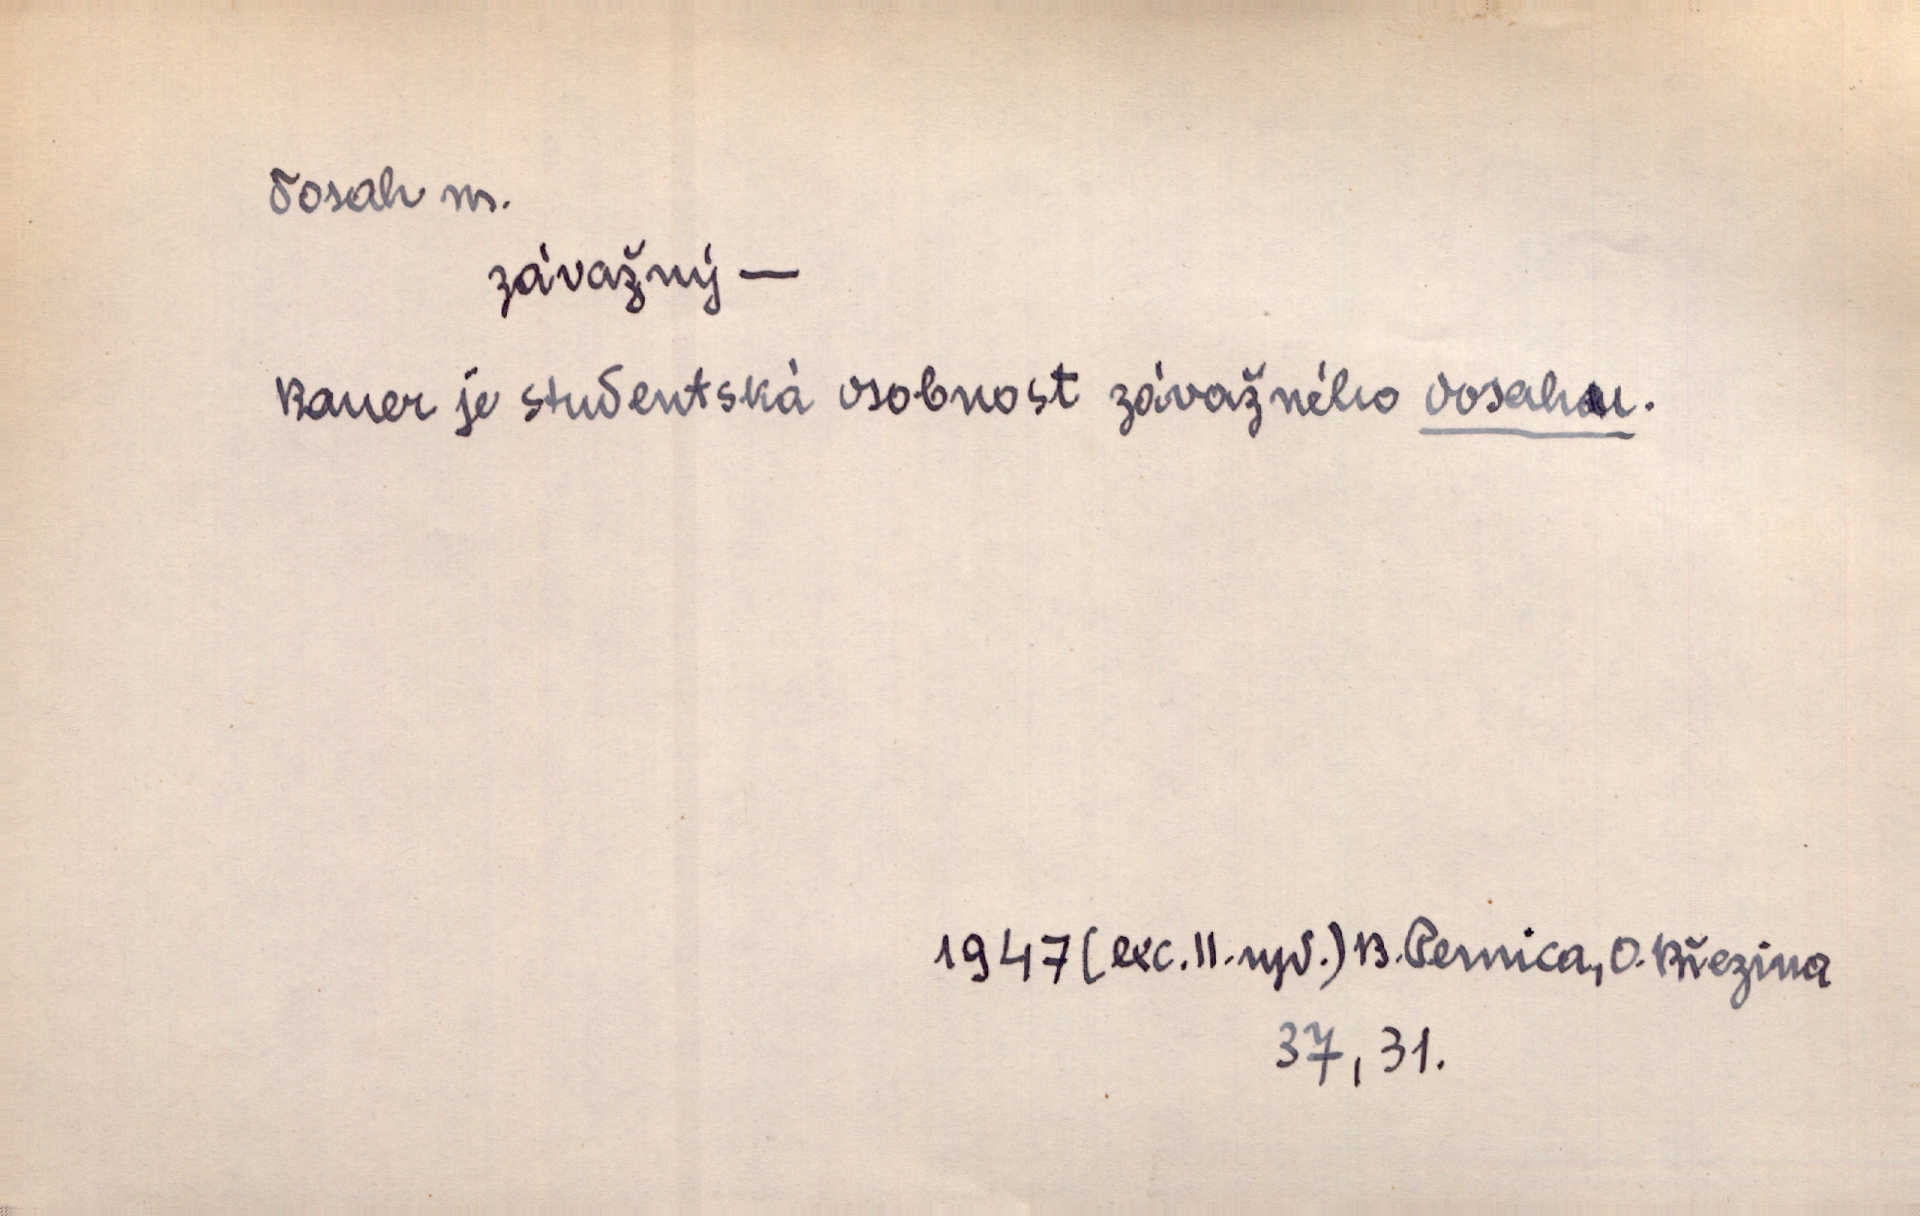 dosah m.
závažný —
Bauer je studentská osobnost závažného dosahu.
1947 (exc. II. vyd.) B. Pernica, O. Březina
37, 31.